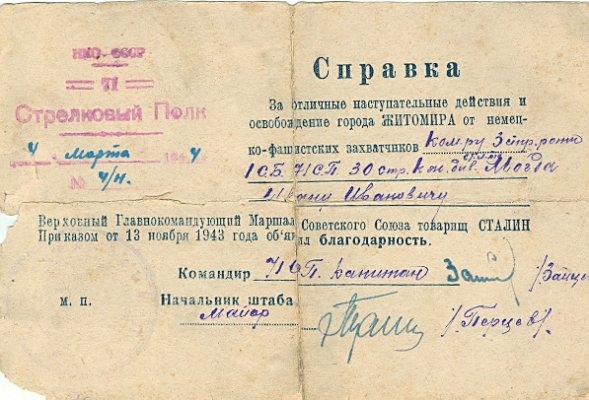 НКО-СССР
71
Стрелковый Полк
4 Марта 1944
№ 4/н.
Справка
За отличные наступательные действия и
освобождение города ЖИТОМИРА от немец-
ко-фашистских захватчиков ком-ру 3 стр. роты
1 СБ. 71 СП 30 стр. див.
Ивану Ивановичу
Верховный Главнокомандующий Маршал Советского Союза товарищ СТАЛИН
Приказом от 13 ноября 1943 года об'явил благодарность.
Командир 71 СП. капитан /Зайцев
м. п. Начальник штаба
Майор /Перцев/.